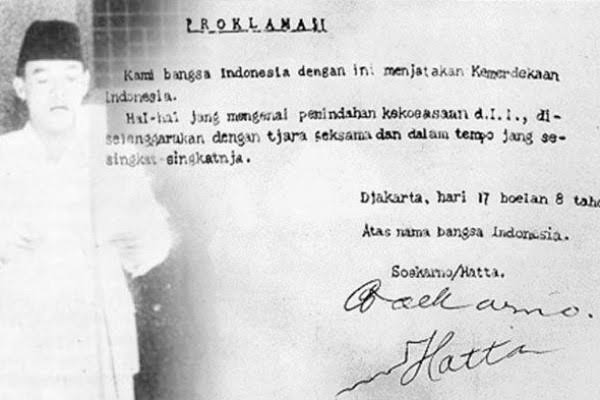 PROKLAMASI
Kami bangsa Indonesia dengan ini menjatakan Kemerdekaan
Indonesia.
Hal-hal jang mengenai pemindahan kekoeasaan d.l.l., di-
selenggarakan dengan tjara seksama dan dalam tempo jang se-
singkat-singkatnja.
Djakarta, hari 17 boelan 8 taho
Atas nama bangsa Indonesia.
Soekarno/Hatta.
Soekarno.
Hatta